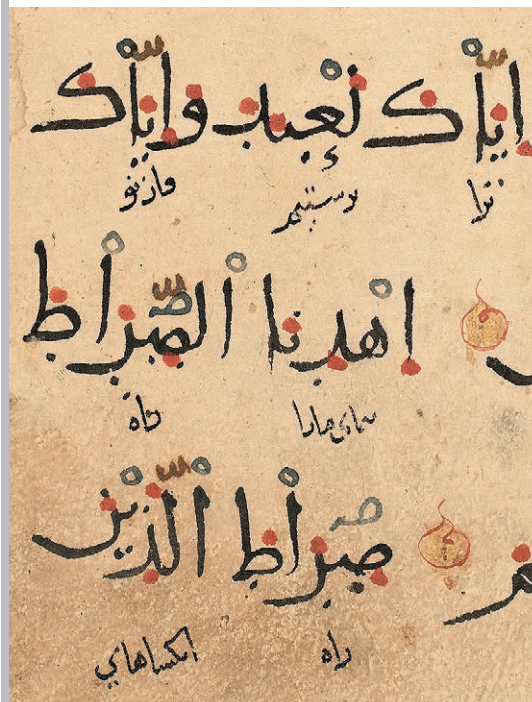 إيّاك نعبد وإيّاك
ترا پرستیم وازتو
اهدنا الصّراط
مارا راه
صراط الّذين
راه انکساهای